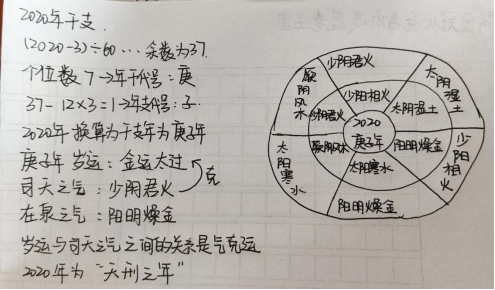 2020年干支
(2020-3)÷60 … 余数为37.
个位数 7→年干代号：庚
37-12×3=1→年支代号：子
2020年换算为干支年为庚子年
庚子年 岁运：金运太过
克
司天之气：少阴君火
在泉之气：阳明燥金
岁运与司天之气之间的关系是气克运
2020年为“天刑之年”
少阴君火
太阴湿土
少阳相火
阳明燥金
太阳寒水
厥阴风木
少阳相火
太阴湿土
阳明燥金
太阳寒水
厥阴风木
少阴君火
2020
庚子年